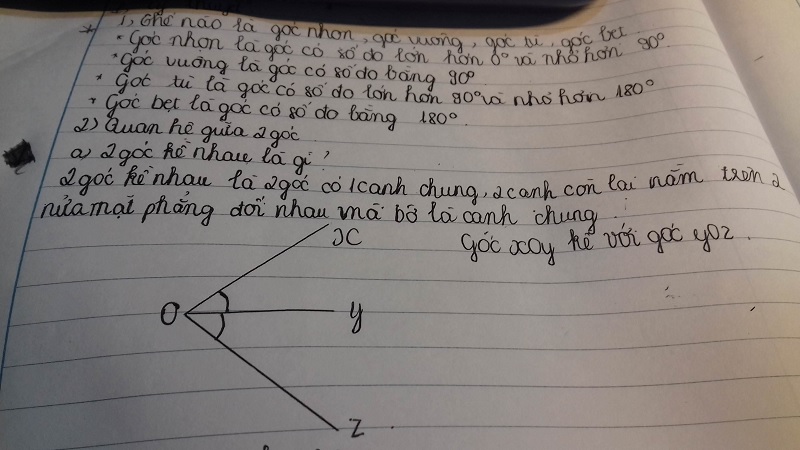 1, Thế nào là góc nhọn, góc vuông, góc tù, góc bẹt
* Góc nhọn là góc có số đo lớn hơn 0° và nhỏ hơn 90°
* góc vuông là góc có số đo bằng 90°
* Góc tù là góc có số đo lớn hơn 90° và nhỏ hơn 180°
* Góc bẹt là góc có số đo bằng 180°
2) Quan hệ giữa 2 góc
a) 2 góc kề nhau là gì?
2 góc kề nhau là 2 góc có 1 cạnh chung, 2 cạnh còn lại nằm trên 2
nửa mặt phẳng đối nhau mà bờ là cạnh chung.
Góc xOy kề với góc yOz.
x
O
y
z